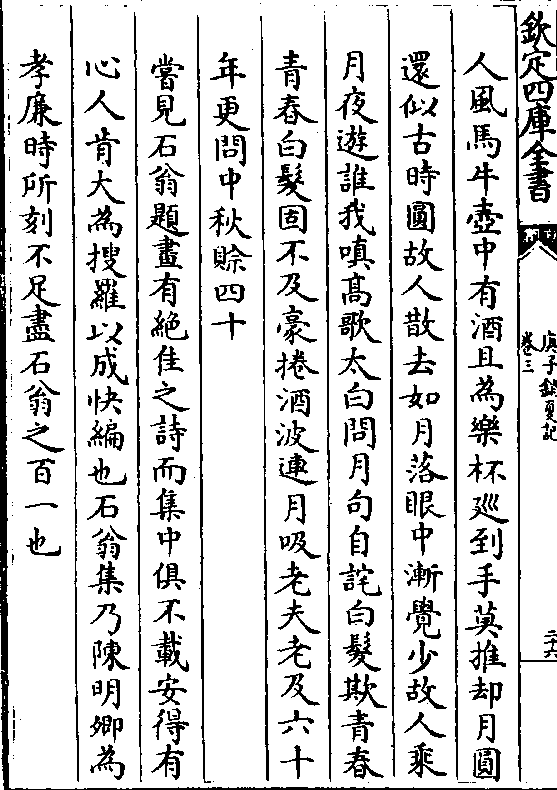 欽定四庫全書
庚子銷夏記
卷三
二十六
人風馬牛壺中有酒且為樂杯廵到手莫推却月圓
還似古時圓故人散去如月落眼中漸覺少故人乘
月夜遊誰我嗔髙歌太白問月句自詫白髮欺青春
青春白髮固不及豪捲酒波連月吸老夫老及六十
年更問中秋賒四十
嘗見石翁題畫有絶佳之詩而集中俱不載安得有
心人肯大為搜羅以成快編也石翁集乃陳明卿為
孝廉時所刻不足盡石翁之百一也